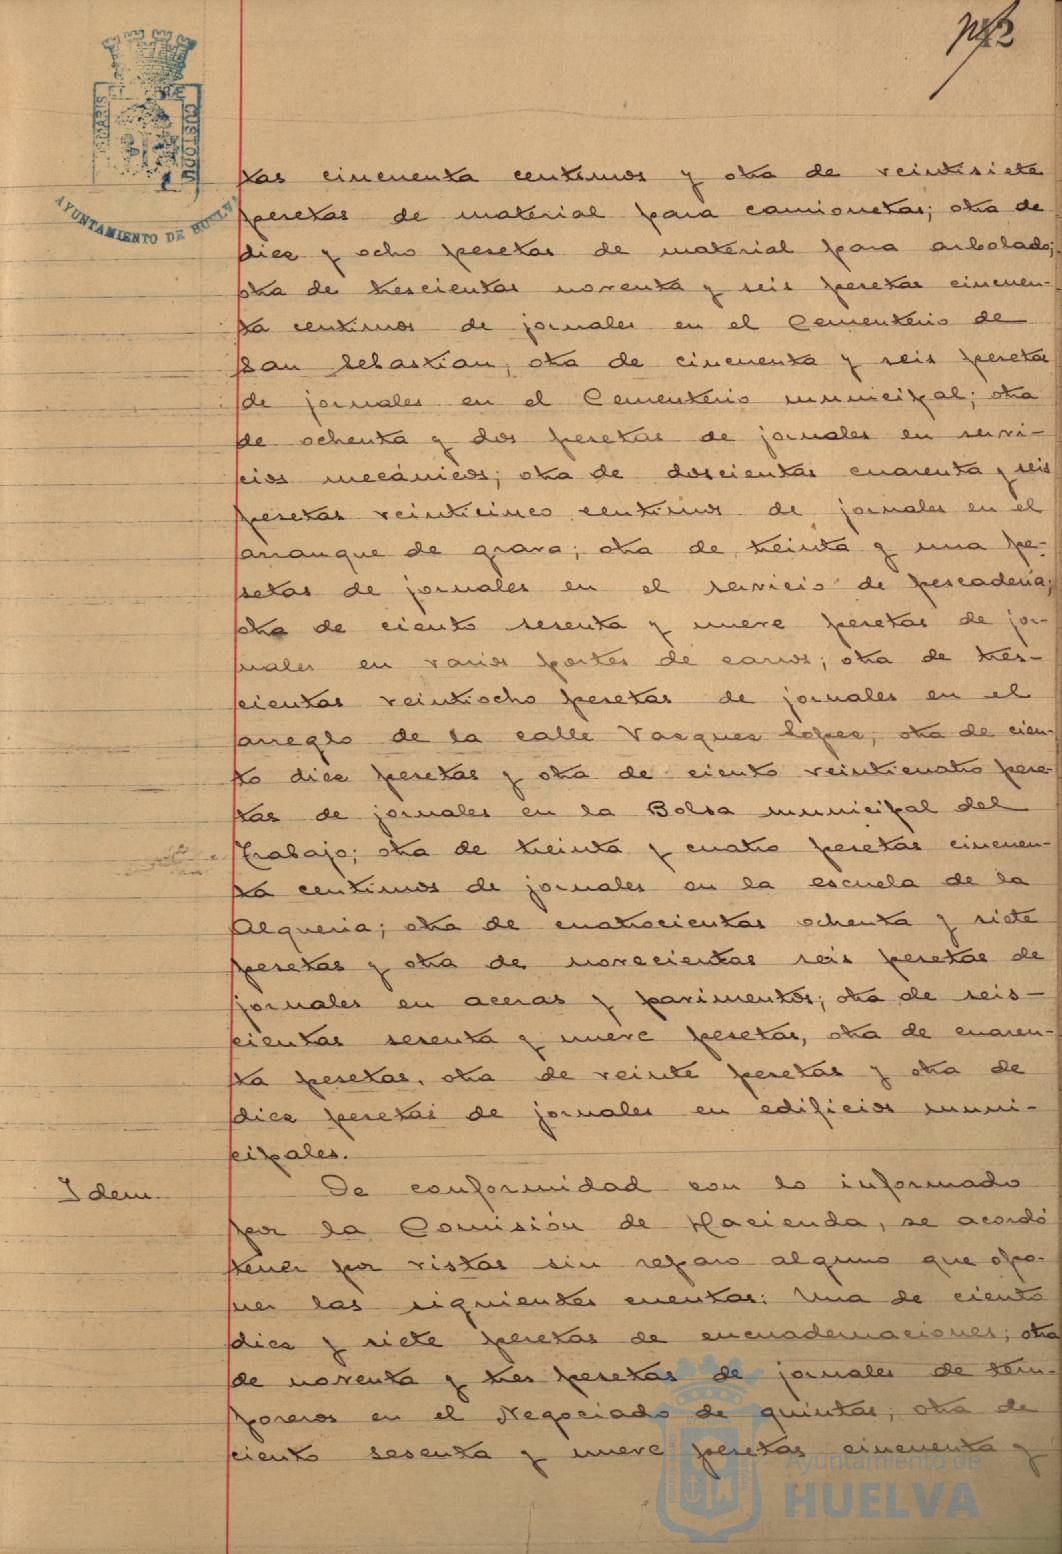 AYUNTAMIENTO DE HUELVA
tas cincuenta centimos y otra de veintisiete
pesetas de material para camionetas; otra de
diez y ocho pesetas de material para arbolado;
otra de trescientas noventa y seis pesetas cincuen-
ta centimos de jornales en el Cementerio de
San Sebastian, otra de cincuenta y seis pesetas
de jornales en el Cementerio municipal; otra
de ochenta y dos pesetas de jornales en servi-
cios mecánicos; otra de doscientas cuarenta y seis
pesetas veinticinco centimos de jornales en el
arranque de grava; otra de treinta y una pe-
setas de jornales en el servicio de pescaderia;
otra de ciento sesenta y nueve pesetas de jor-
nales en varios portes de carros; otra de tres-
cientas veintiocho pesetas de jornales en el
arreglo de la calle Vasques Lopez, otra de cien-
to diez pesetas y otra de ciento veinticuatro pese-
tas de jornales en la Bolsa municipal del
Trabajo; otra de treinta y cuatro pesetas cincuen-
ta centimos de jornales en la escuela de la
Alqueria; otra de cuatrocientas ochenta y siete
pesetas y otra de novecientas seis pesetas de
jornales en aceras y pavimentos; otra de seis-
cientas sesenta y nueve pesetas, otra de cuaren-
ta pesetas, otra de veinte pesetas y otra de
diez pesetas de jornales en edificios muni-
cipales.
Idem. De conformidad con lo informado
por la Comisión de Hacienda, se acordó
tener por vistas sin reparo alguno que opo-
ner las siguientes cuentas: Una de ciento
diez y siete pesetas de encuadernaciones; otra
de noventa y tres pesetas de jornales de tem-
poreros en el Negociado de quintas; otra de
ciento sesenta y nueve pesetas cincuenta y
Ayuntamiento de
HUELVA